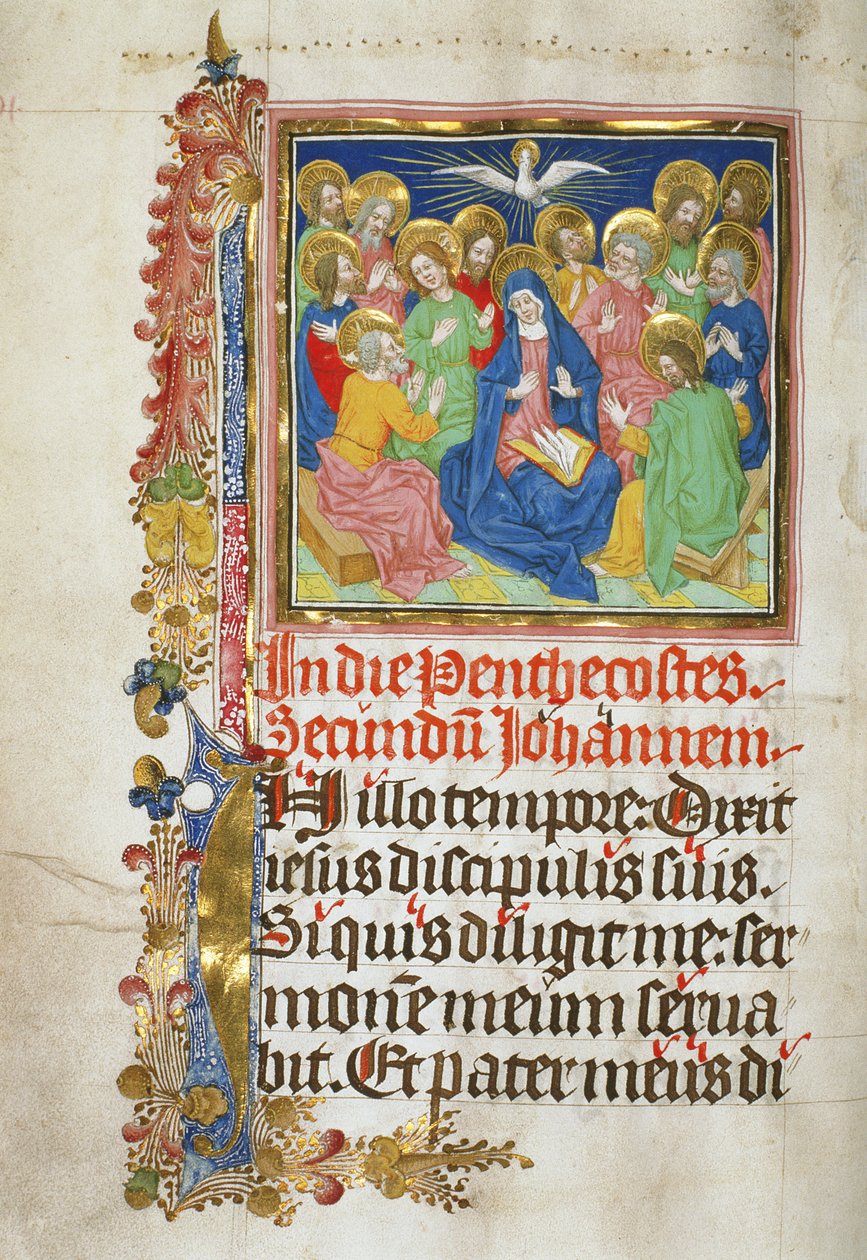 In die Penthecostes.
Secundū Johannem.
IN illo tempore: Dixit
iesus discipulis suis.
Si quis diligit me: ser
monē meum serua
bit. Et pater meus di